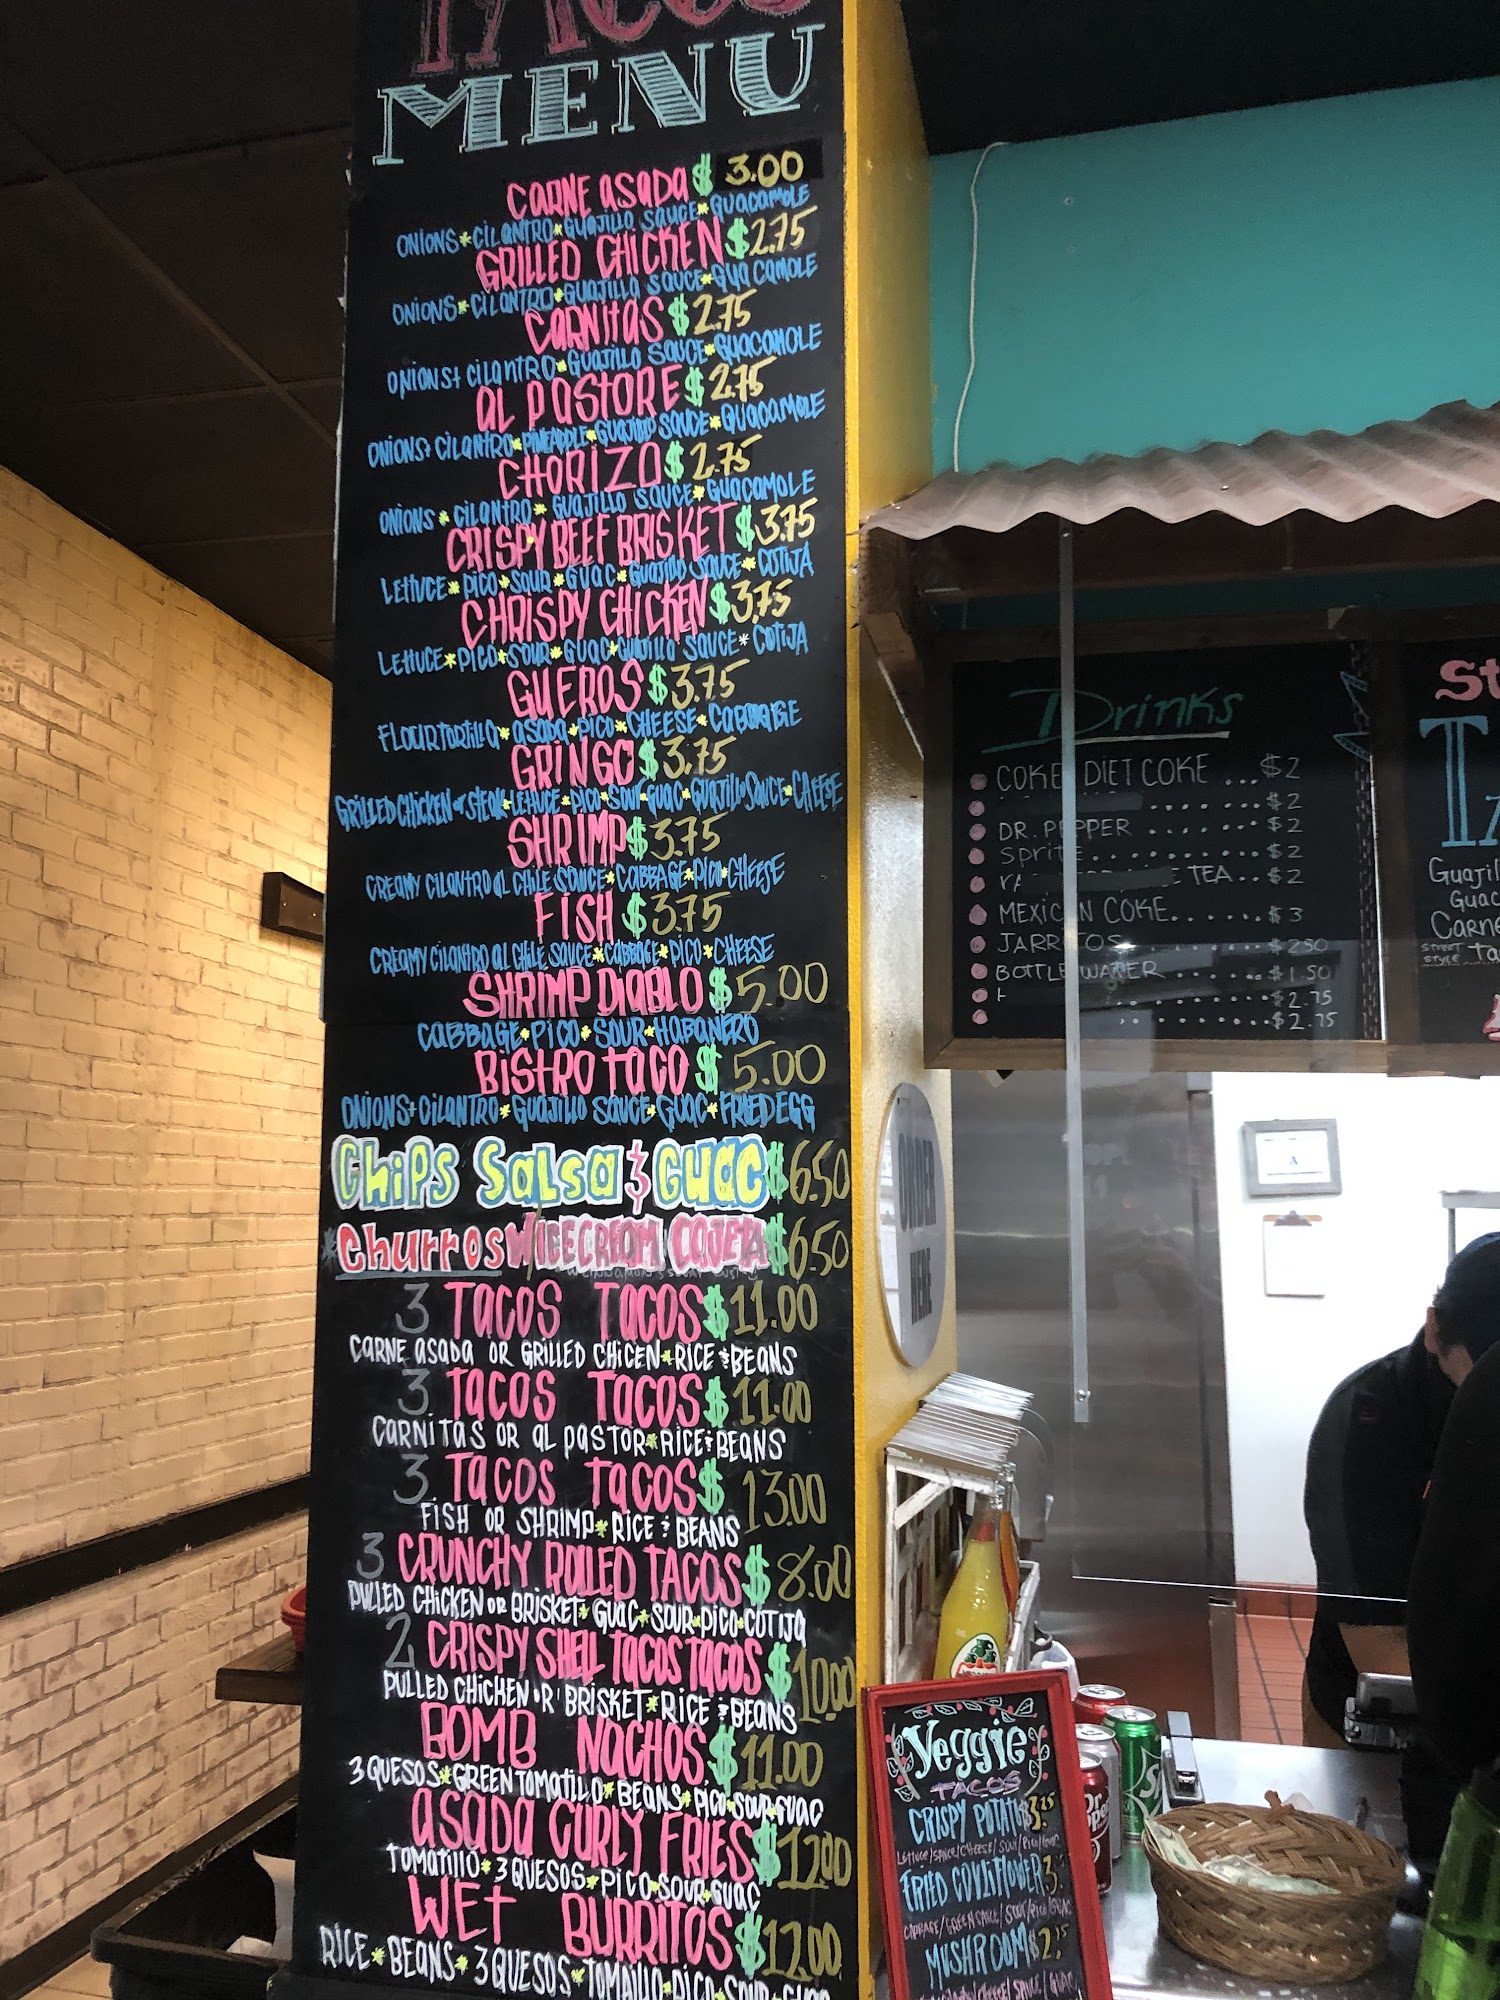 TACOS
MENU
CARNE ASADA $ 3.00
ONIONS * CILANTRO * GUAJILLO SAUCE * GUACAMOLE
GRILLED CHICKEN $2.75
ONIONS * CILANTRO * GUAJILLO SAUCE * GUACAMOLE
CARNITAS $2.75
ONIONS + CILANTRO * GUAJILLO SAUCE * GUACAMOLE
AL PASTORE $2.75
ONIONS + CILANTRO * PINEAPPLE * GUAJILLO SAUCE * GUACAMOLE
CHORIZO $2.75
ONIONS * CILANTRO * GUAJILLO SAUCE * GUACAMOLE
CRISPY BEEF BRISKET $3.75
LETTUCE * PICO * SOUR * GUAC * GUAJILLO SAUCE * COTIJA
CHRISPY CHICKEN $3.75
LETTUCE * PICO * SOUR * GUAC * GUAJILLO SAUCE * COTIJA
GUEROS $3.75
FLOUR TORTILLA * ASADA * PICO * CHEESE * CABBAGE
GRINGO $3.75
GRILLED CHICKEN or STEAK * LETTUCE * PICO * SOUR * GUAC * GUAJILLO SAUCE * CHEESE
SHRIMP $3.75
CREAMY CILANTRO AL CHILE SAUCE * CABBAGE * PICO * CHEESE
FISH $3.75
CREAMY CILANTRO AL CHILE SAUCE * CABBAGE * PICO * CHEESE
SHRIMP DIABLO $5.00
CABBAGE * PICO * SOUR * HABANERO
BISTRO TACO $5.00
ONIONS + CILANTRO * GUAJILLO SAUCE * GUAC * FRIED EGG
Chips Salsa & GUAC $6.50
Churros W/ICECREAM CAJETA $6.50
3 TACOS TACOS $11.00
CARNE ASADA OR GRILLED CHICEN * RICE & BEANS
3 TACOS TACOS $11.00
CARNITAS OR AL PASTOR * RICE & BEANS
3 TACOS TACOS $13.00
FISH OR SHRIMP * RICE & BEANS
3 CRUNCHY ROLLED TACOS $8.00
PULLED CHICKEN OR BRISKET * GUAC * SOUR * PICO * COTIJA
2 CRISPY SHELL TACOS TACOS $10.00
PULLED CHICKEN OR BRISKET * RICE & BEANS
BOMB NACHOS $11.00
3 QUESOS * GREEN TOMATILLO * BEANS * PICO * SOUR * GUAC
ASADA CURLY FRIES $12.00
TOMATILLO * 3 QUESOS * PICO * SOUR * GUAC
WET BURRITOS $12.00
RICE * BEANS * 3 QUESOS * TOMAILLO * PICO * SOUR * GUAC
Drinks
COKE DIET COKE ... $2
....... $2
DR. PEPPER ....... $2
Sprite .......... $2
TEA .. $2
MEXICAN COKE ...... $3
JARRITOS ....... $2.50
BOTTLE WATER ...... $1.50
....... $2.75
....... $2.75
St
TA
Guajil
Guac
Carne
STREET STYLE Ta
ORDER
HERE
A
Veggie
TACOS
CRISPY POTATO $3.25
LETTUCE/SAUCE/CHEESE/SOUR/PICO/GUAC
FRIED COULIFLOWER 3
CABBAGE/GREEN SAUCE/SOUR/PICO/GUAC
MUSHROOM $2.75
CHEESE/SAUCE/GUAC
Dr Pepper